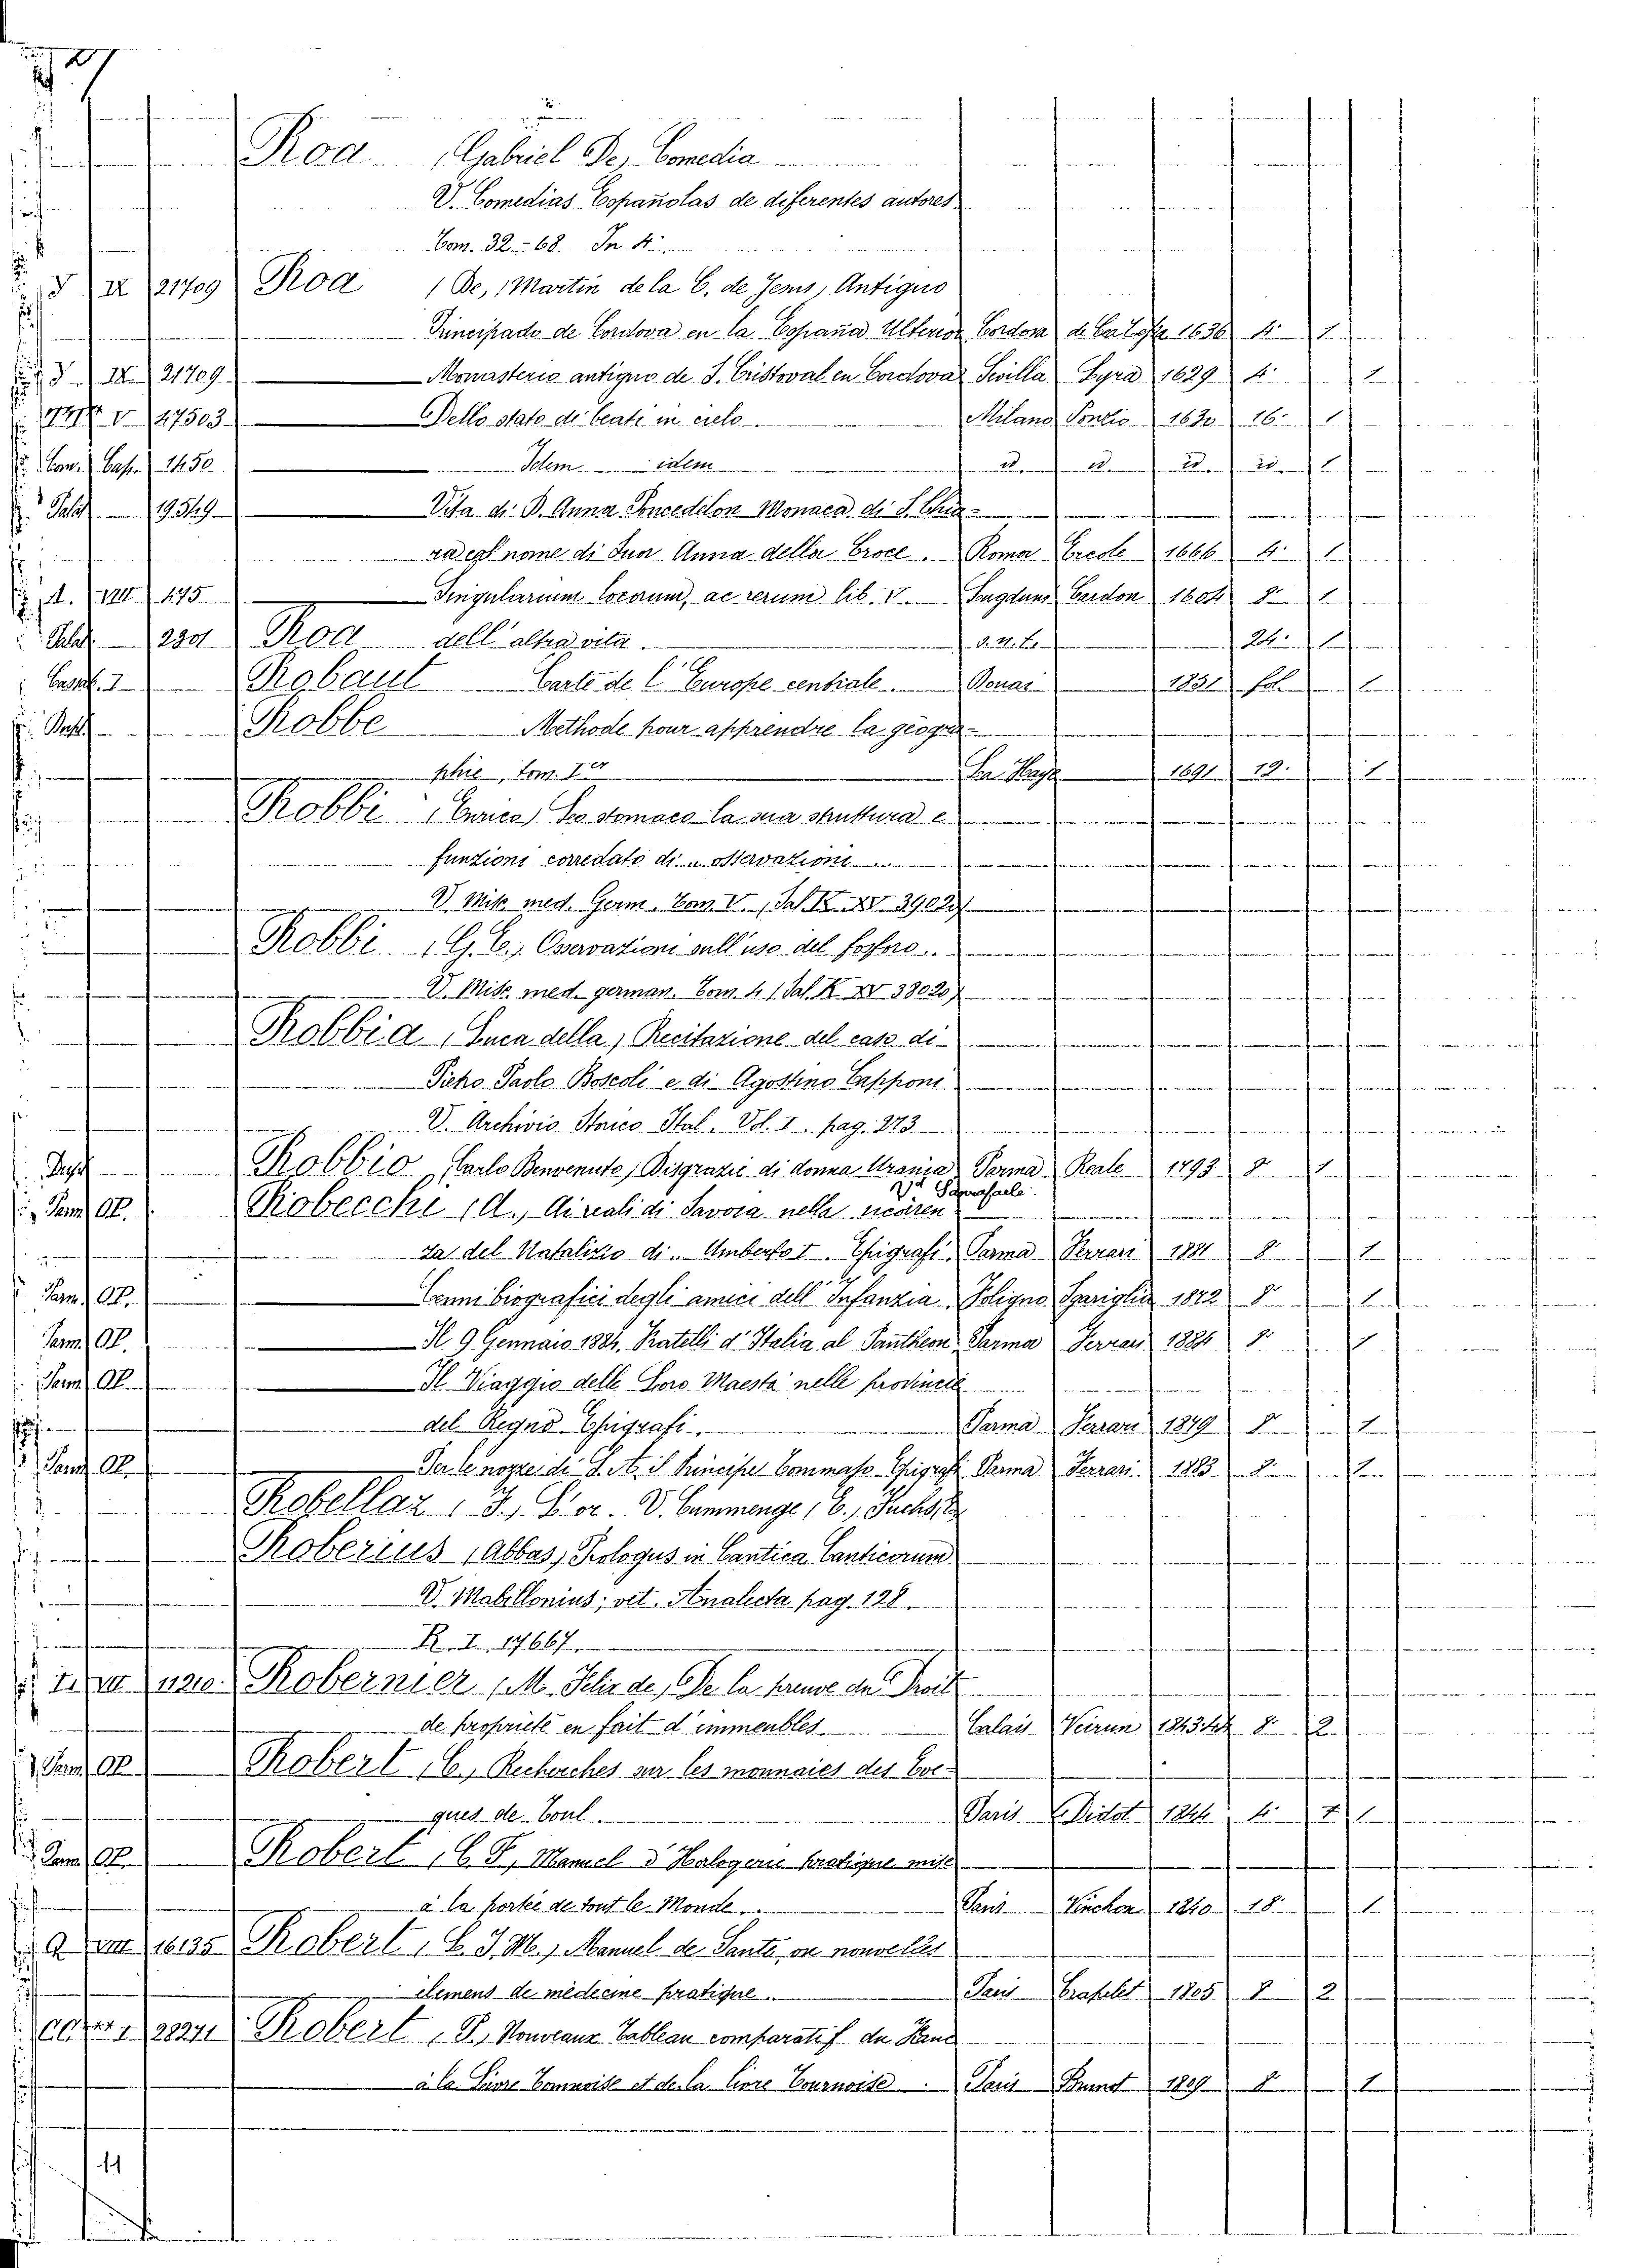 Roa (Gabriel De) Comedia
V. Comedias Españolas de diferentes autores
Tom. 32-68 In 4.
IX 21709 Roa (De, Martin de la C. de Jesus) Antiguo
Principado de Cordova en la España Ulterior Cordova de Cea 1636 4. 1
IX 21709 Monasterio antiguo de S. Cristoval en Cordova Sevilla Lyra 1629 4. 1
V 47503 Dello stato de' beati in cielo Milano Ponzio 1630 16. 1
Cap. 1450 Idem idem id. id. id. id. 1
Palat. 19549 Vita di D. Anna Poncedelon Monaca di S. Chia-
ra col nome di Suor Anna della Croce. Roma Erede 1666 4. 1
VIII 475 Singularium locorum, ac rerum lib. V. Lugduni Cardon 1604 8. 1
Palat. 2301 Roa dell' altra vita. 24. 1
Casap. I Robaut Carte de l'Europe centrale. Douai 1831 fol. 1
Robbe Methode pour apprendre la géogra-
phie, tom. I.er La Haye 1691 12. 1
Robbi (Enrico) Lo stomaco la sua struttura e
funzioni corredato di osservazioni
V. Misc. med. Germ. Tom. V. (Sal. K. XV. 39020)
Robbi (G. C.) Osservazioni sull'uso del fosforo.
V. Misc. med. german. Tom. 4. (Sal. K. XV 38020)
Robbia (Luca della) Recitazione del caso di
Pietro Paolo Boscoli e di Agostino Capponi
V. Archivio Storico Ital. Vol. I. pag. 273
Robbio (Carlo Benvenuto) Disgrazie di donna Urania Parma Reale 1793 8. 1
V.i Sanrafaele.
Parm. OP. Robecchi (A.) Ai reali di Savoia nella ricorren-
za del Natalizio di Umberto I. Epigrafi Parma Ferrari 1881 8. 1
Parm. OP. Cenni biografici degli amici dell' Infanzia. Foligno Sgariglia 1872 8. 1
Parm. OP. Il 9 Gennaio 1884. Fratelli d'Italia al Pantheon Parma Ferrari 1884 8. 1
Parm. OP. Il Viaggio delle Loro Maestà nelle provincie
del Regno Epigrafi. Parma Ferrari 1879 8. 1
Parm. OP. Per le nozze di S. A. il Principe Tommaso Epigrafi Parma Ferrari 1883 8. 1
Robellaz (F.) L'or. V. Cummenge (E.) Fuchs,
Roberius (Abbas) Prologus in Cantica Canticorum
V. Mabillonius; vet. Analecta pag. 128.
R. I. 17667.
VII 11210 Robernier (M. Felix de) De la preuve du Droit
de propriété en fait d'immeubles. Calais 1843.44 8. 2.
Parm. OP. Robert (C.) Recherches sur les monnaies des Eve-
ques de Toul. Paris Didot 1844 4. 1
Parm. OP. Robert (C. F.) Manuel d'Halogenie pratique mise
à la portée de tout le Monde. Paris Vinchon 1840 18. 1
VIII 16135 Robert (L. J. M.) Manuel de Santé, ou nouvelles
élemens de médecine pratique. Paris Crapelet 1805 8 2
28271 Robert (P.) Nouveaux Tableau comparatif du Franc
à la Livre Tournoise et de la livre Tournoise. Paris Brunot 1809 8 1
11